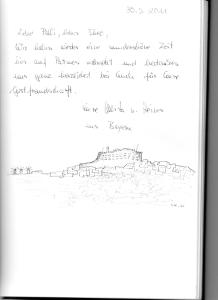 30.5.2011
Liebe Pelli, lieber
wir haben wieder eine wunderschöne Zeit
hier auf Patmos verbracht und bedanken
uns ganz herzlich bei Euch für Eure
Gastfreundschaft.
Eure u.
aus Bayern